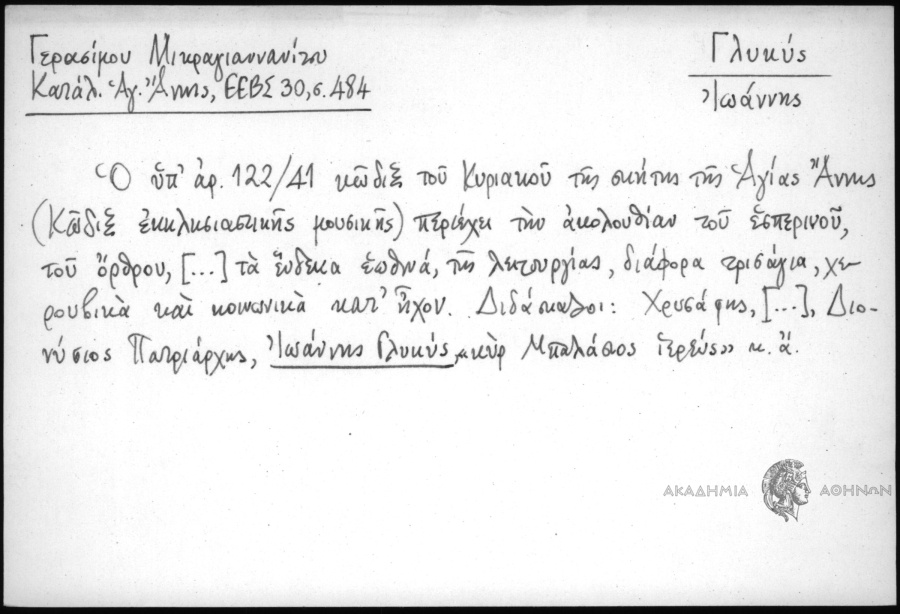 Γερασίμου Μικραγιαννανίτου
Κατάλ. Ἁγ. Ἄννης, ΕΕΒΣ 30, σ. 484
Γλυκύς
Ἰωάννης
Ὁ ὑπ' ἀρ. 122/41 κῶδιξ τοῦ Κυριακοῦ τῆς σκήτης τῆς Ἁγίας Ἄννης
(Κῶδιξ ἐκκλησιαστικῆς μουσικῆς) περιέχει τὴν ἀκολουθίαν τοῦ ἑσπερινοῦ,
τοῦ ὄρθρου, [...] τὰ ἕνδεκα ἑωθινά, τῆς λειτουργίας, διάφορα τρισάγια, χε-
ρουβικὰ καὶ κοινωνικὰ κατ' ἦχον. Διδάσκαλοι: Χρυσάφης, [...], Διο-
νύσιος Πατριάρχης, Ἰωάννης Γλυκύς, «κὺρ Μπαλάσιος ἱερεύς» κ. ἄ.
ΑΚΑΔΗΜΙΑ ΑΘΗΝΩΝ